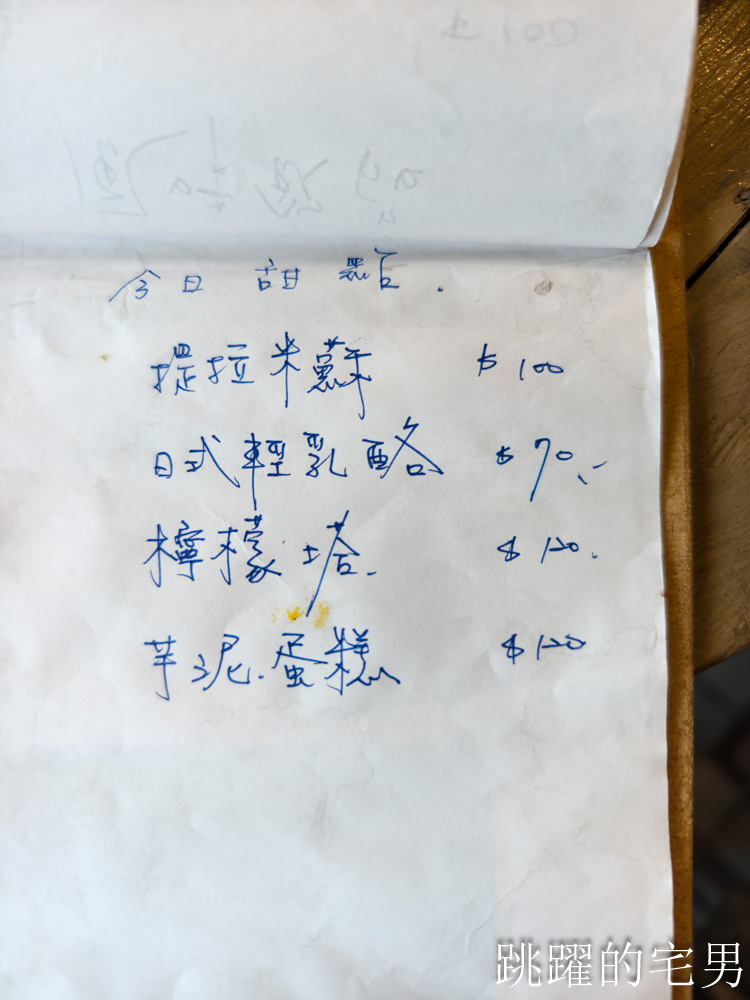 今日甜點.
提拉米蘇 $100
日式輕乳酪 $70.-
檸檬塔. $120.
芋泥.蛋糕 $120
跳躍的宅男